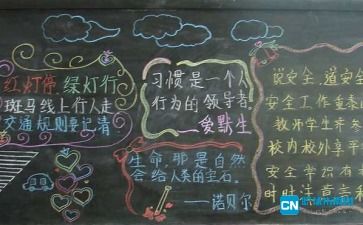 红灯停 绿灯行
斑马线上行人走
交通规则要记清
习惯是一个人
行为的领导者
——爱默生
生命,那是自然
会给人类的宝石。
——诺贝尔
说安全,道安全
安全工作
教师学生
校内校外享平
安全常识有
时时注意
CN